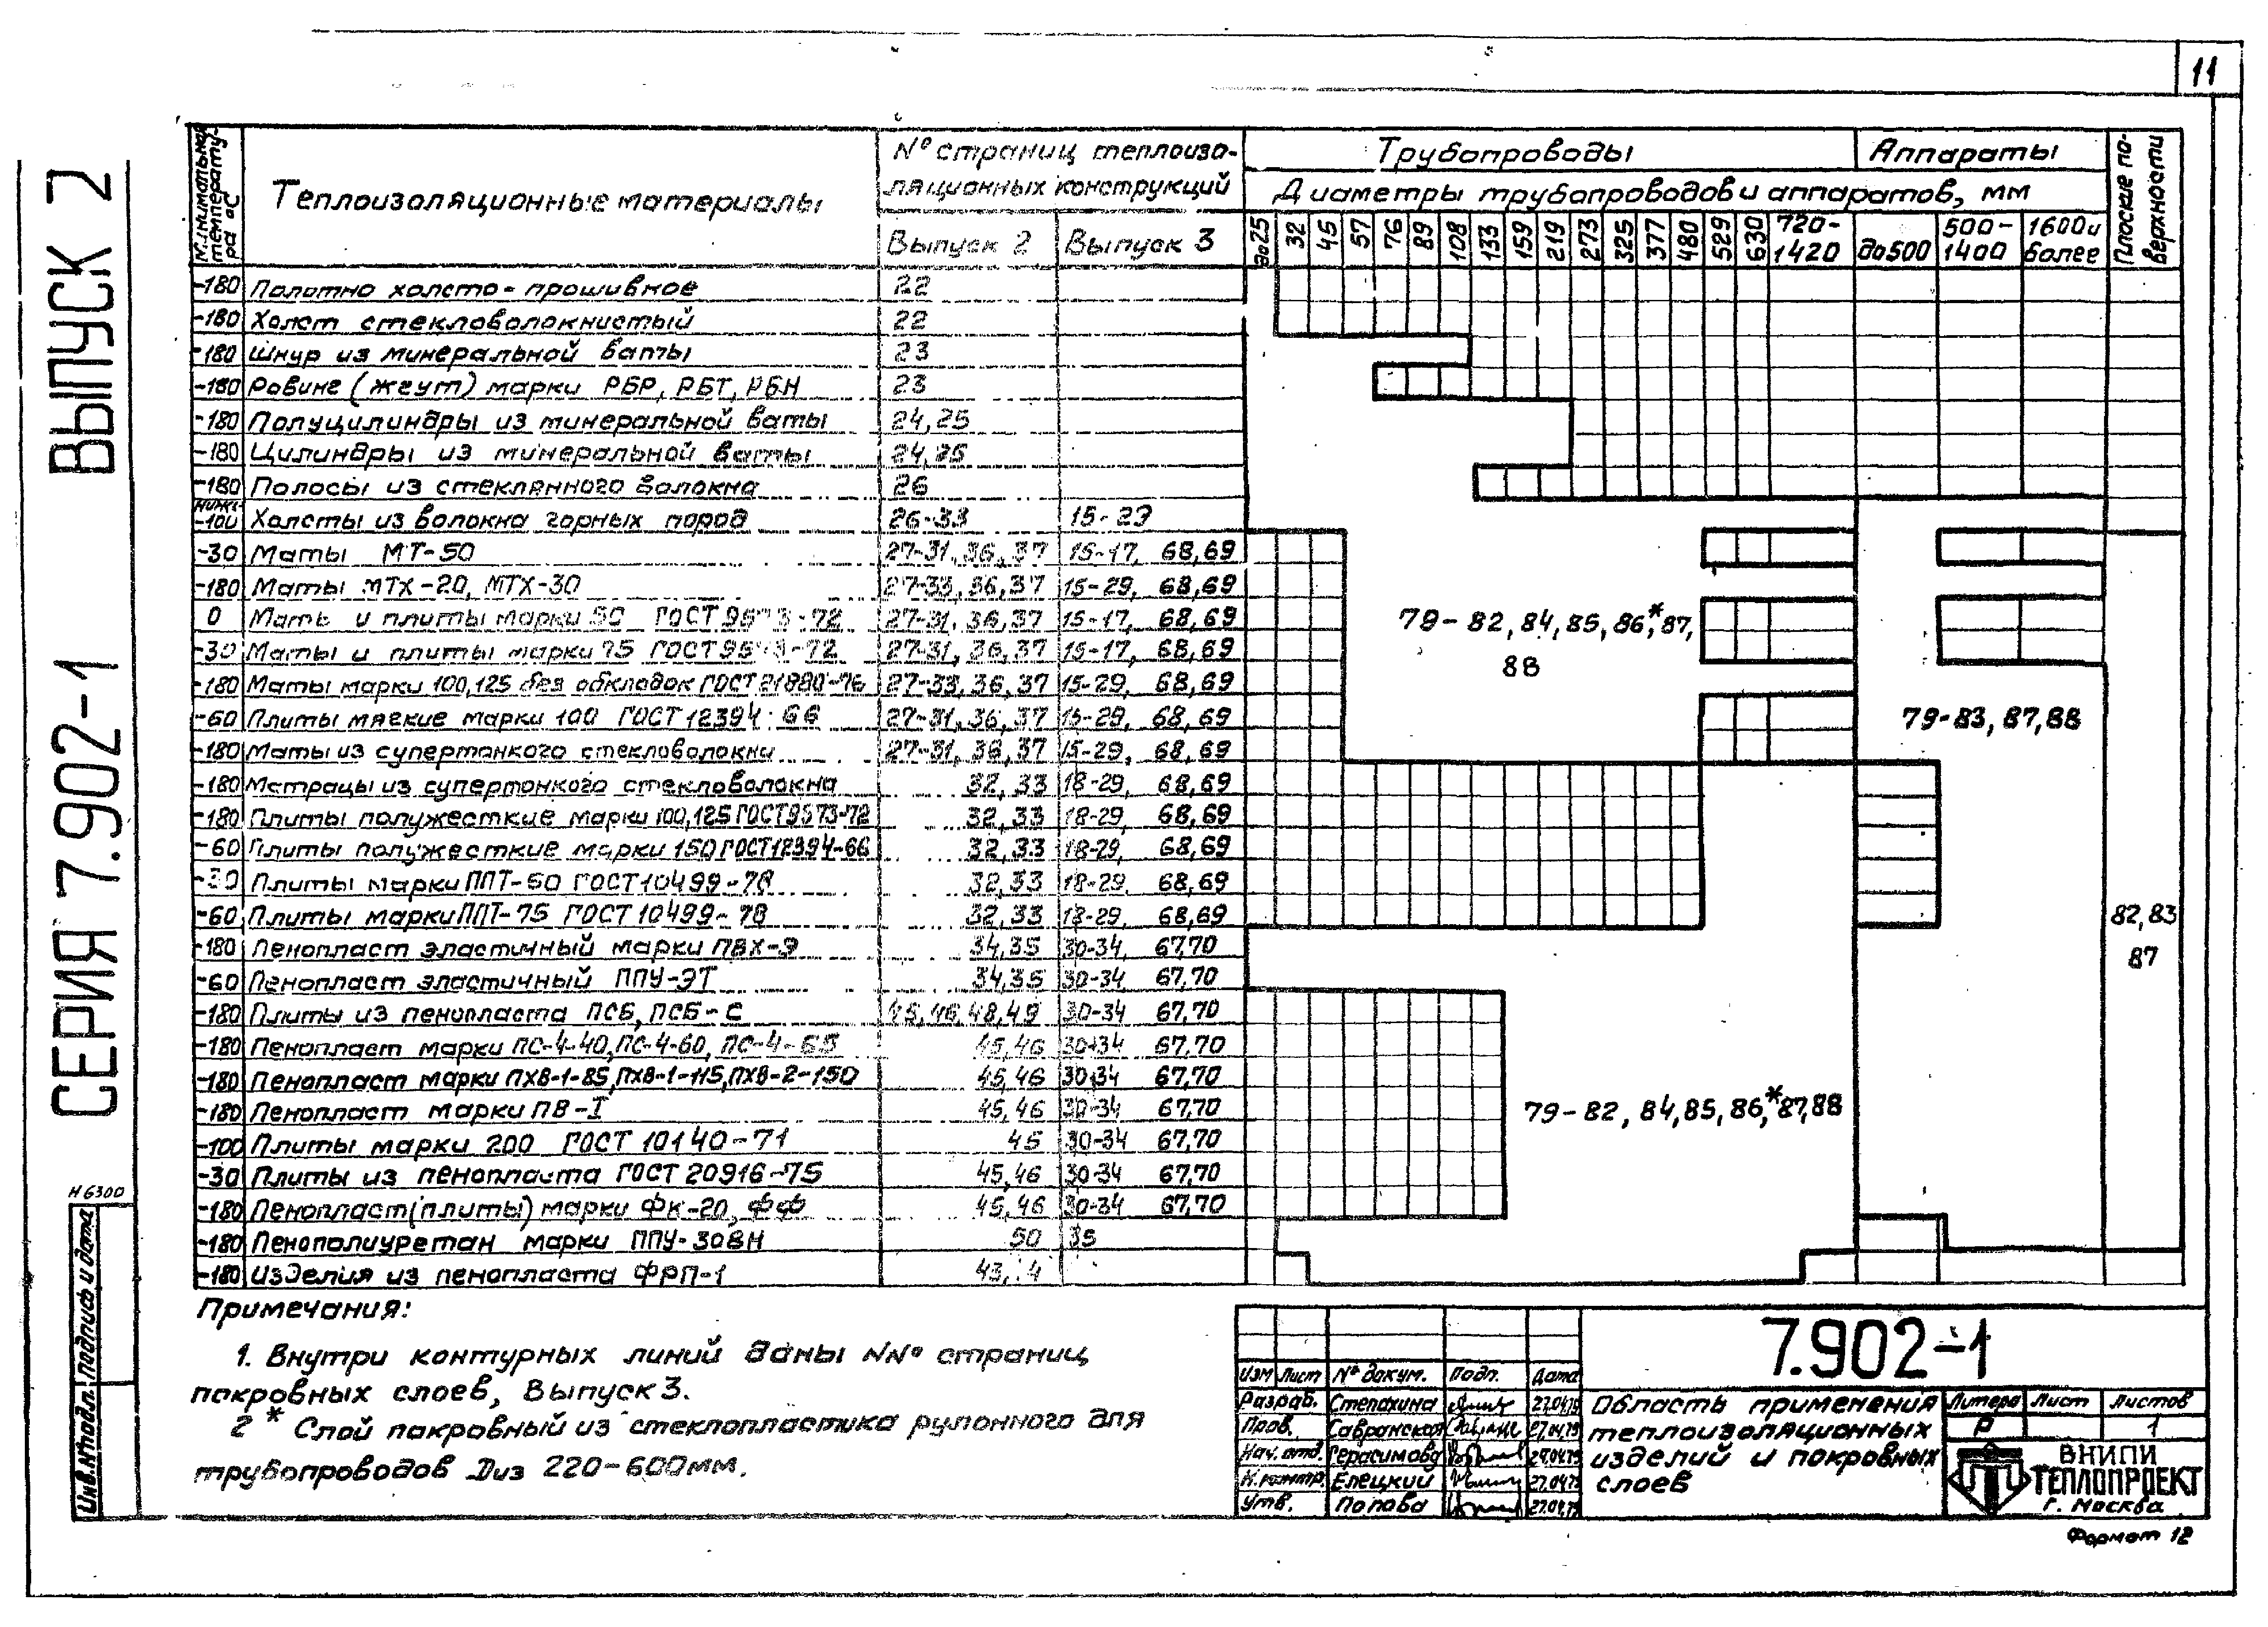 11
СЕРИЯ 7.902-1 ВЫПУСК 2
Минимальная температура °С
Теплоизоляционные материалы
№ страниц теплоизоляционных конструкций
Выпуск 2 Выпуск 3
Трубопроводы Аппараты Плоские поверхности
Диаметры трубопроводов и аппаратов, мм
до 25 32 45 57 76 89 108 133 159 219 273 325 377 480 529 630 720-1420 до 500 500-1400 1600 и более
-180 Полотно холсто-прошивное 22
-180 Холст стекловолокнистый 22
-180 Шнур из минеральной ваты 23
-180 Ровинг (жгут) марки РБР, РБТ, РБН 23
-180 Полуцилиндры из минеральной ваты 24,25
-180 Цилиндры из минеральной ваты 24,25
-180 Полосы из стеклянного волокна 26
ниже -100 Холсты из волокна горных пород 26-33 15-29
-30 Маты МТ-50 27-31,36,37 15-17, 68,69
-180 Маты МТХ-20, МТХ-30 27-33,36,37 15-29, 68,69
0 Маты и плиты марки 50 ГОСТ 9573-72 27-31,36,37 15-17, 68,69
-30 Маты и плиты марки 75 ГОСТ 9573-72 27-31,36,37 15-17, 68,69
-180 Маты марки 100,125 без обкладок ГОСТ 21880-76 27-33,36,37 15-29, 68,69
-60 Плиты мягкие марки 100 ГОСТ 12394-66 27-31,36,37 15-29, 68,69
-180 Маты из супертонкого стекловолокна 27-31,36,37 15-29, 68,69
-180 Матрацы из супертонкого стекловолокна 32,33 18-29, 68,69
-180 Плиты полужесткие марки 100,125 ГОСТ 9573-72 32,33 18-29, 68,69
-60 Плиты полужесткие марки 150 ГОСТ 12394-66 32,33 18-29, 68,69
-30 Плиты марки ППТ-50 ГОСТ 10499-78 32,33 18-29 68,69
-60 Плиты марки ППТ-75 ГОСТ 10499-78 32,33 18-29, 68,69
-180 Пенопласт эластичный марки ПВХ-Э 34,35 30-34, 67,70
-60 Пенопласт эластичный ППУ-ЭТ 34,35 30-34 67,70
-180 Плиты из пенопласта ПСБ, ПСБ-С 45,46,48,49 30-34 67,70
-180 Пенопласт марки ПС-4-40, ПС-4-60, ПС-4-65 45,46 30-34 67,70
-180 Пенопласт марки ПХВ-1-85, ПХВ-1-115, ПХВ-2-150 45,46 30,34 67,70
-180 Пенопласт марки ПВ-I 45,46 30-34 67,70
-100 Плиты марки 200 ГОСТ 10140-71 45 30-34 67,70
-30 Плиты из пенопласта ГОСТ 20916-75 45,46 30-34 67,70
-180 Пенопласт (плиты) марки ФК-20, ФФ 45,46 30-34 67,70
-180 Пенополиуретан марки ППУ-308Н 50 35
-180 Изделия из пенопласта ФРП-1 43,
79-82,84,85,86,*87,
88
79-83,87,88
82,83
87
79-82,84,85,86,*87,88
Примечания:
1. Внутри контурных линий даны NN° страниц
покровных слоев, Выпуск 3.
2* Слой покровный из стеклопластика рулонного для
трубопроводов Диз 220-600мм.
Н6300
Инв.№подл. Подпись и дата
7.902-1
Изм Лист № докум. Подп. Дата
Разраб. Степахина 27.04.79
Пров. Савранская 27.04.79
Нач.отд. Герасимова 27.04.79
Н.контр. Елецкий 27.04.79
Утв. Попова 27.04.79
Область применения
теплоизоляционных
изделий и покровных
слоев
Литера Лист Листов
Р 1
ВНИПИ
ТЕПЛОПРОЕКТ
г. Москва
Формат 12